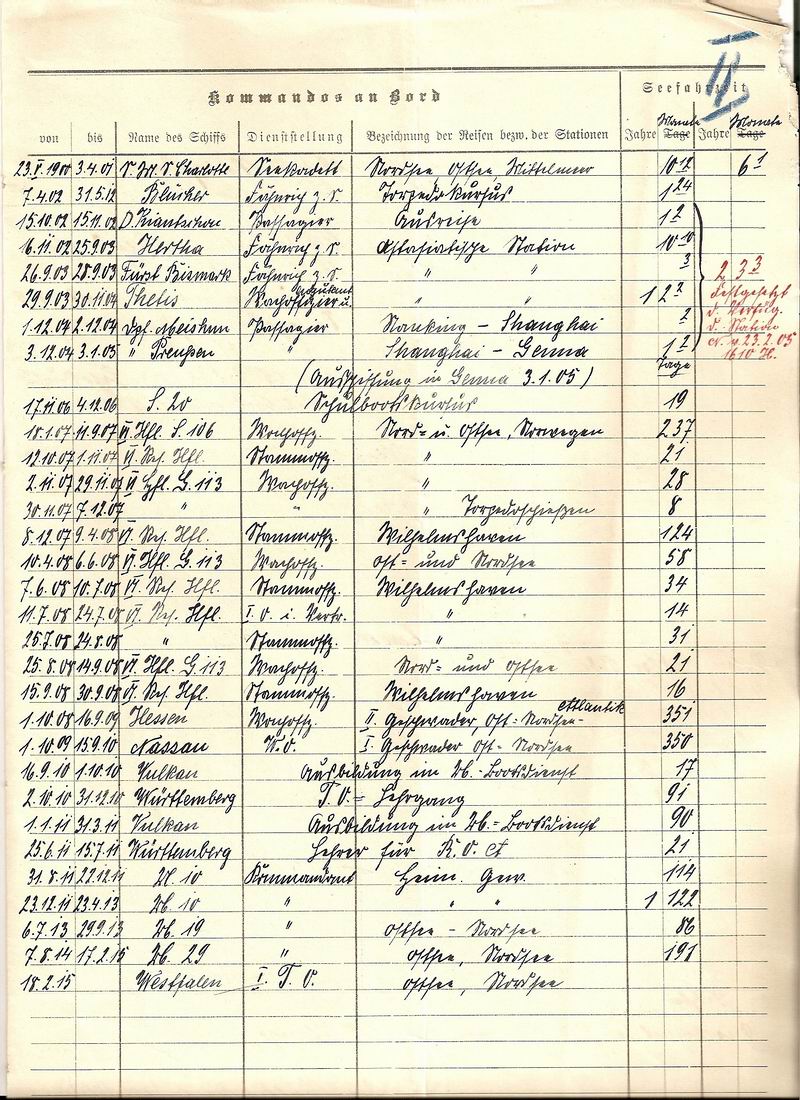 II
Kommandos an Bord Seefahrzeit
von bis Name des Schiffs Dienststellung Bezeichnung der Reisen bezw. der Stationen Jahre Monate Tage Jahre Monate Tage
23.V.1900 3.4.01 S.M.S. Charlotte Seekadett Nordsee, Ostsee, Mittelmeer 10 12 6 1
7.4.02 31.5.02 Blücher Fähnrich z. S. Torpedokursus 1 24
15.10.02 15.11.02 D. Kiautschou Passagier Ausreise 1 2
16.11.02 25.9.03 Hertha Fähnrich z. S. Ostasiatische Station 10 10
26.9.03 28.9.03 Fürst Bismark Fähnrich z. S. " " 3
29.9.03 30.11.04 Thetis Wachoffizier u. Adjutant " " 1 2 2
1.12.04 2.12.04 Dpf. Meishun Passagier Nanking - Shanghai 2
3.12.04 3.1.05 " Preußen " Shanghai - Genua 1 2
2 3 3 Festgesetzt d. Verfüg. d. Station N. v. 23.2.05 1610 H.
(Ausschiffung in Genua 3.1.05) Tage
17.11.06 4.12.06 S. 20 Schulbootskursus 19
18.1.07 11.9.07 VI. Hfl. S. 106 Wachoffz. Nord- u. Ostsee, Norwegen 237
12.10.07 1.11.07 VI. Res. Hfl. Stammoffz. " 21
2.11.07 29.11.07 VI. Hfl. G. 113 Wachoffz. " 28
30.11.07 7.12.07 " " " Torpedoschießen 8
8.12.07 9.4.08 VI. Res. Hfl. Stammoffz. Wilhelmshaven 124
10.4.08 6.6.08 VI. Hfl. G. 113 Wachoffz. Ost- und Nordsee 58
7.6.08 10.7.08 VI. Res. Hfl. Stammoffz. Wilhelmshaven 34
11.7.08 24.7.08 VI. Res. Hfl. I. O. i. Vertr. " 14
25.7.08 24.8.08 " Stammoffz. " 31
25.8.08 14.9.08 VI. Hfl. G 113 Wachoffz. Nord- und Ostsee 21
15.9.08 30.9.08 VI. Res. Hfl. Stammoffz. Wilhelmshaven 16
1.10.08 16.9.09 Hessen Wachoffz. II. Geschwader Ost- Nordsee- Atlantik 351
1.10.09 15.9.10 Nassau W.O. I. Geschwader Ost- Nordsee 350
16.9.10 1.10.10 Vulkan Ausbildung im Ub.-Bootsdienst 17
2.10.10 31.12.10 Württemberg T.O. - Lehrgang 91
1.1.11 31.3.11 Vulkan Ausbildung im Ub.-Bootsdienst 90
25.6.11 15.7.11 Württemberg Lehrer für K.O. A 21
31.8.11 22.12.11 U. 10 Kommandant Heim. Gew. 114
23.12.11 23.4.13 Ub. 10 " " " 1 122
6.7.13 29.9.13 Ub. 19 " Ostsee - Nordsee 86
7.8.14 17.2.15 Ub. 29 " Ostsee, Nordsee 191
18.2.15 Westfalen I. T. O. Ostsee, Nordsee